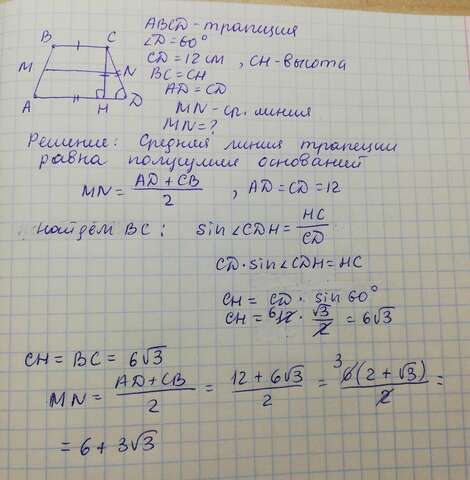 B C
M N
A H D
ABCD - трапеция
∠D = 60°
CD = 12 см, CH - высота
BC = CH
AD = CD
MN - ср. линия
MN = ?
Решение: Средняя линия трапеции
равна полусумме оснований
MN = (AD + CB)/2, AD = CD = 12
Найдём BC: sin ∠CDH = HC/CD
CD · sin ∠CDH = HC
CH = CD · sin 60°
CH = 6 12 · √3/2 = 6√3
CH = BC = 6√3
MN = (AD + CB)/2 = (12 + 6√3)/2 = 3 6(2 + √3)/2 =
= 6 + 3√3